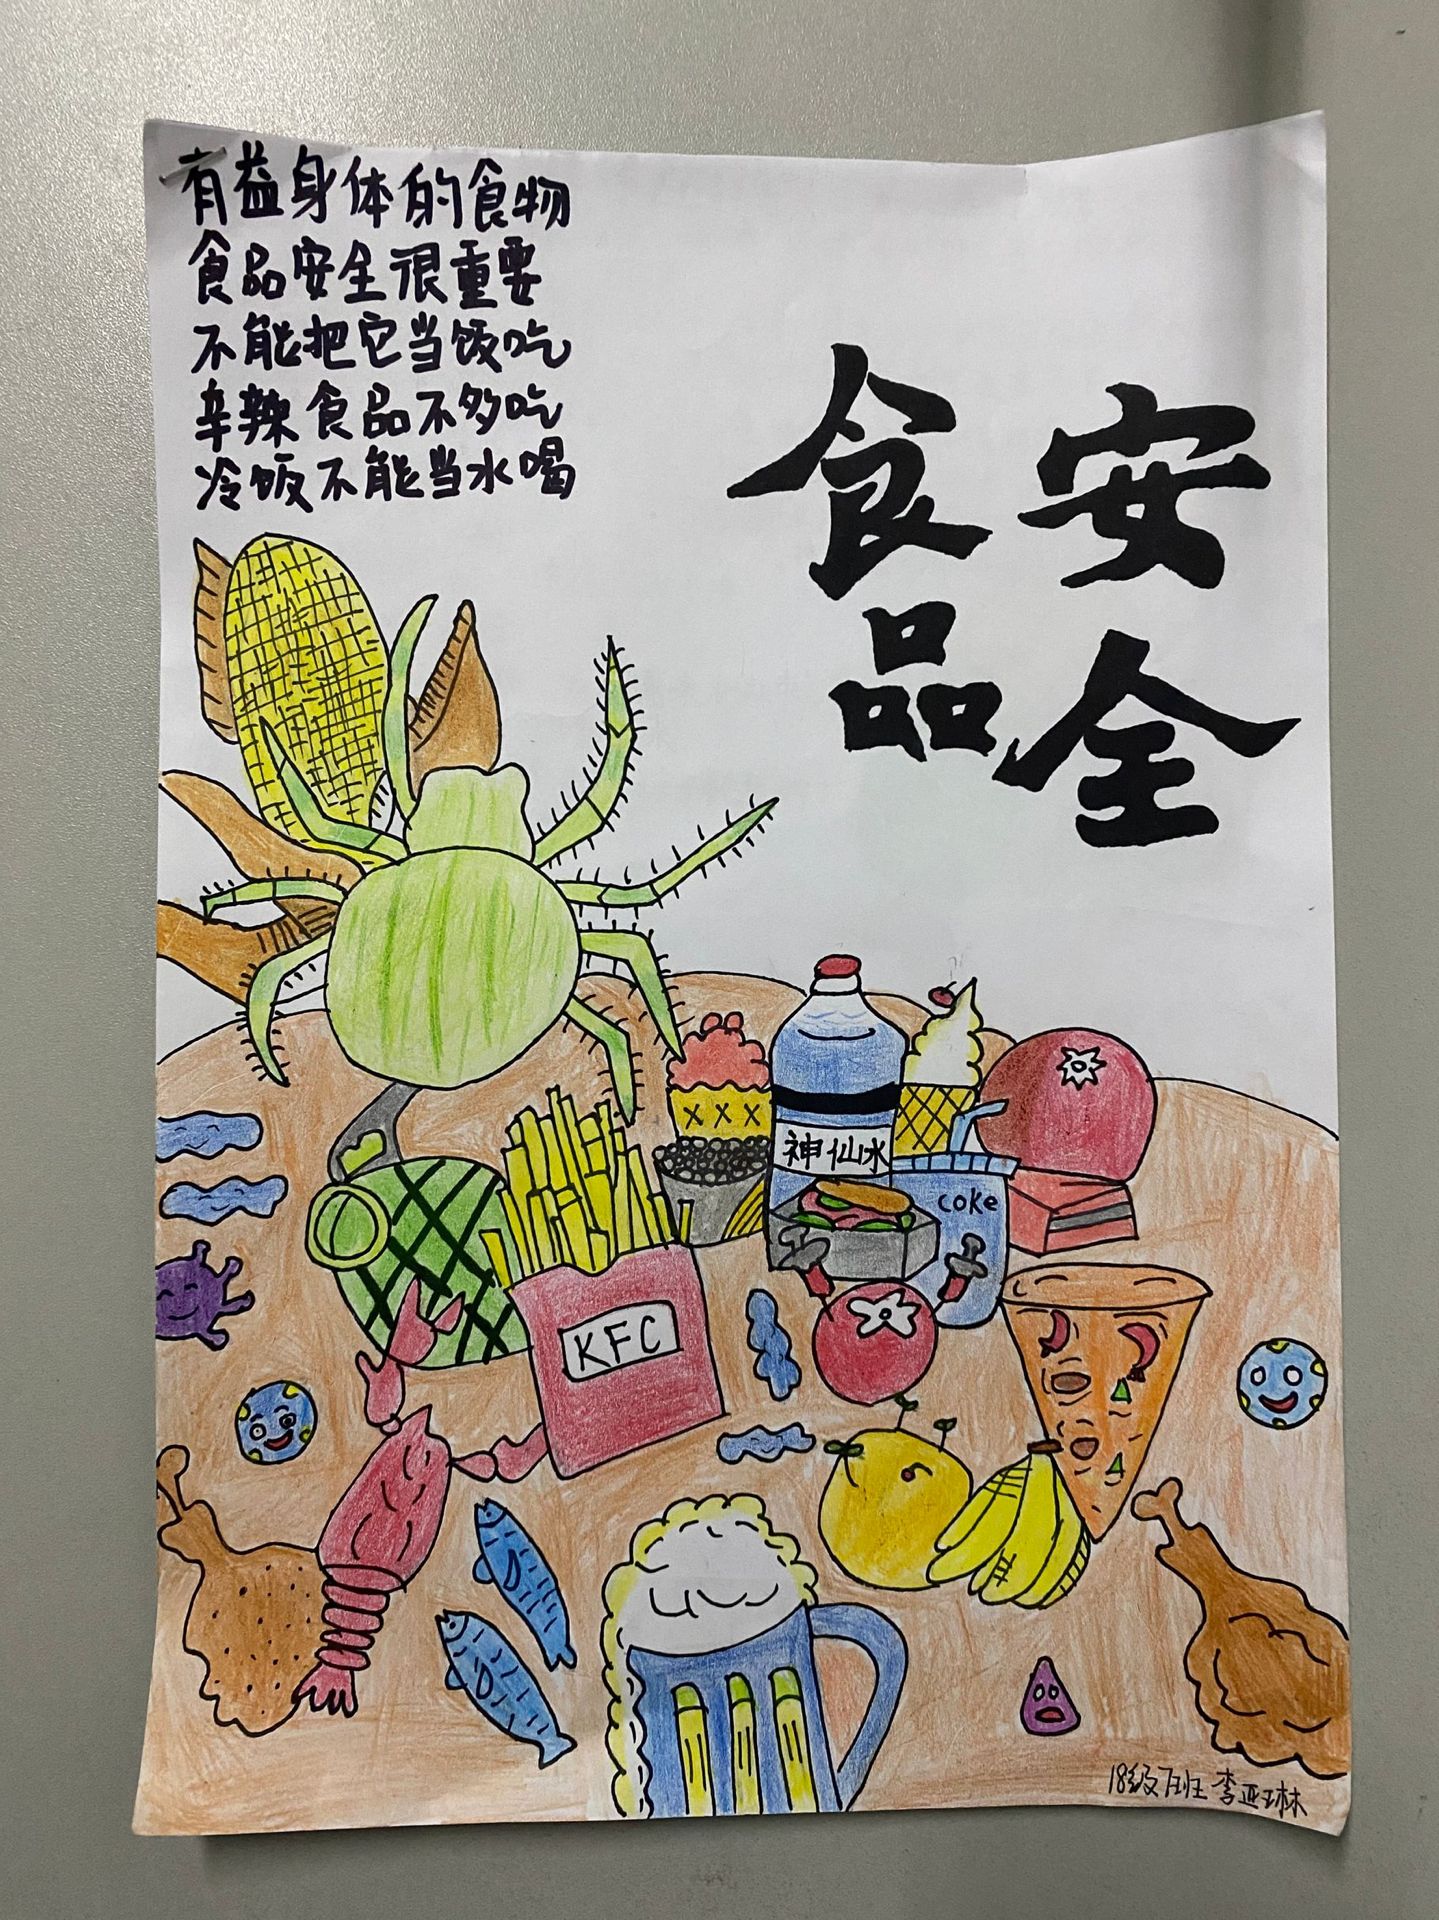 有益身体的食物
食品安全很重要
不能把它当饭吃
辛辣食品不多吃
冷饭不能当水喝
食品
安全
神仙水
coke
KFC
18级7班 李亚琳